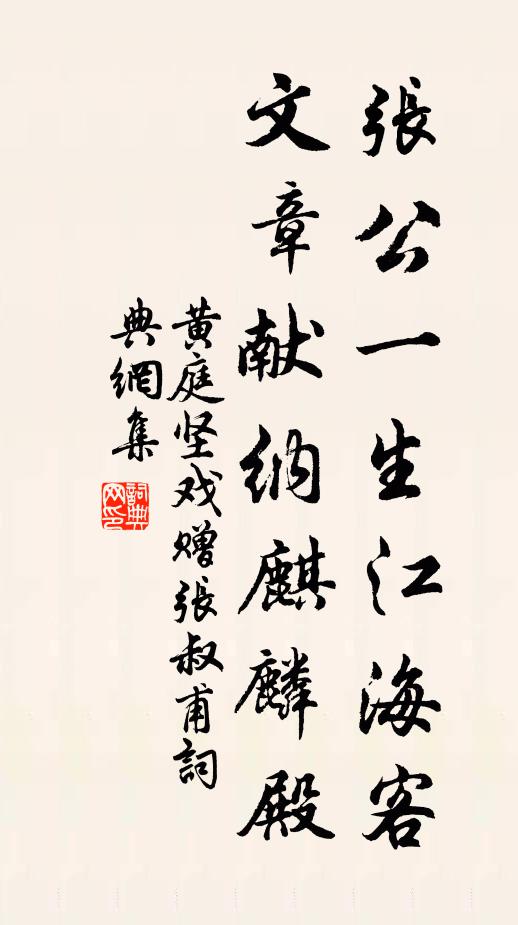 張公一生江海客
文章献纳麒麟殿
黄庭坚戏赠張叔甫詞
典網集
詞典
网印